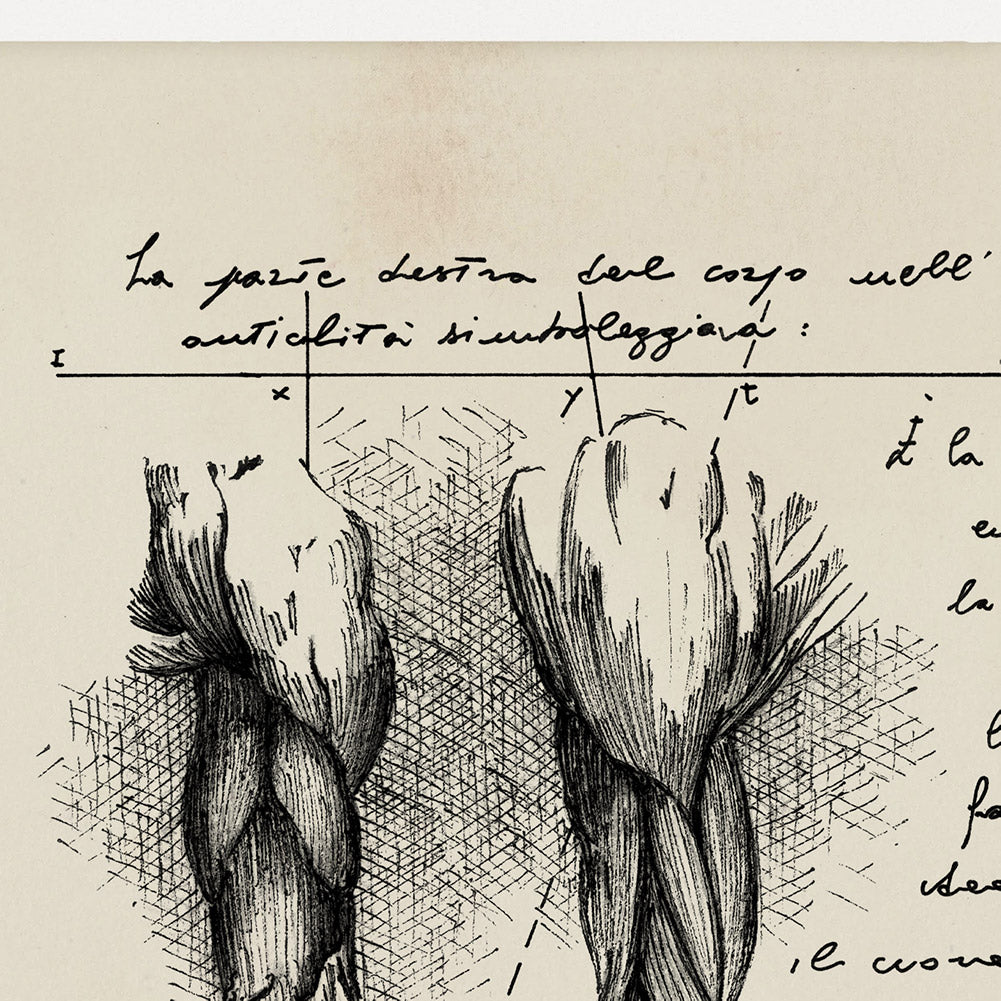 La parte destra del corpo nell'
antichità simboleggiava :
I
x y t
È la
la
il cuore